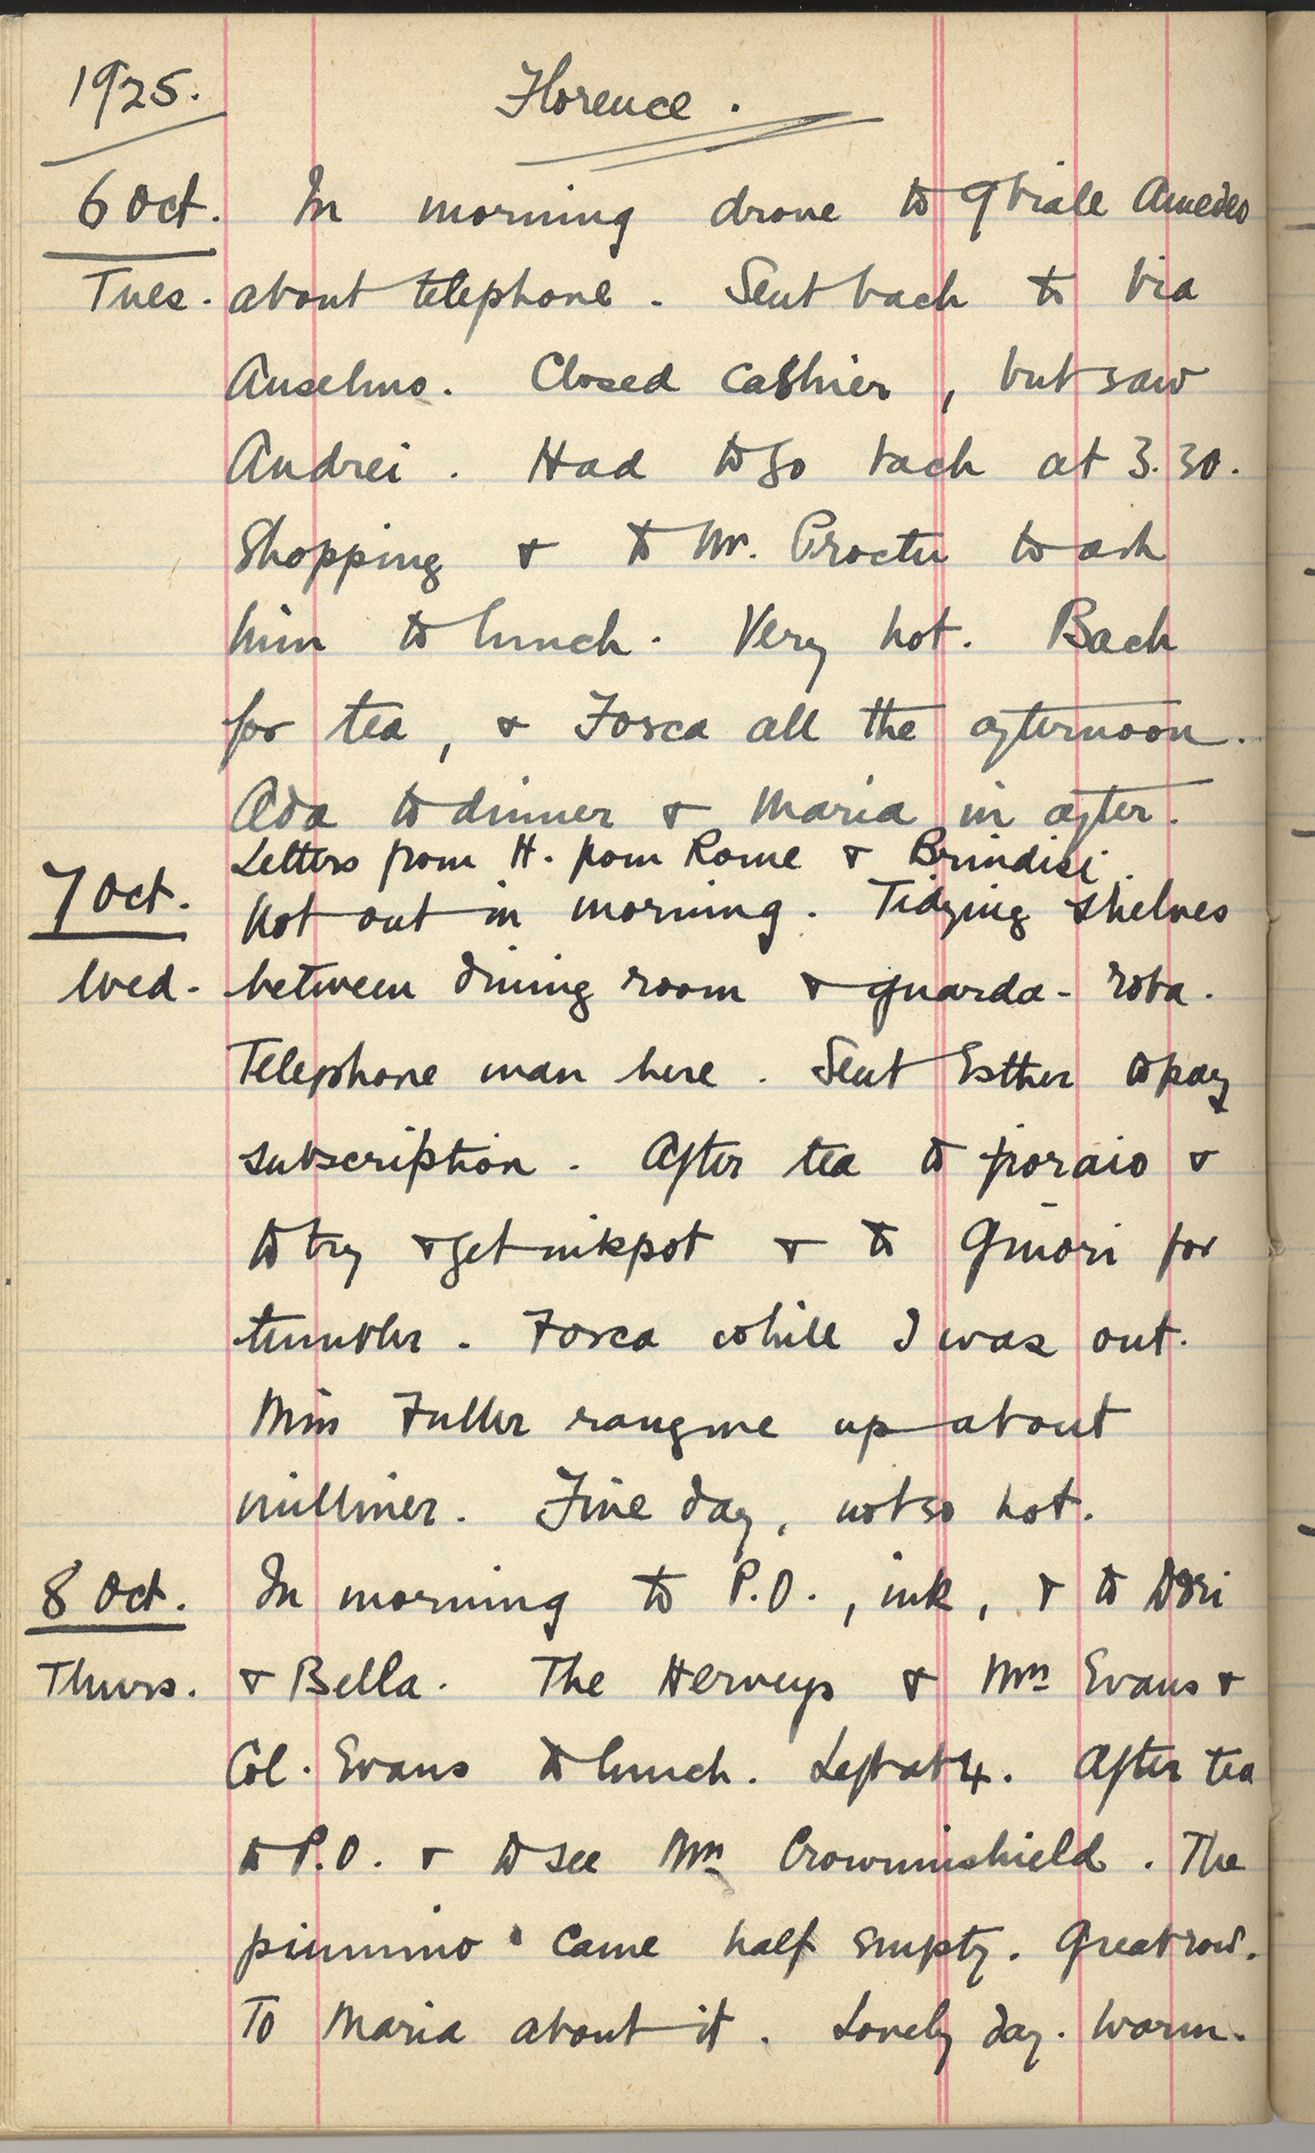 1925. Florence.
6 Oct. In morning drove to 9 Viale Amedeo
Tues. about telephone. Sent back to Via
Anselmo. Closed cashier, but saw
Andrei. Had to go back at 3.30.
Shopping & to Mr. Procter to ask
him to lunch. Very hot. Back
for tea, & Fosca all the afternoon.
Ada to dinner & Maria in after.
Letters from H. from Rome & Brindisi.
7 Oct. Not out in morning. Tidying shelves
Wed. between dining room & guarda-roba.
Telephone man here. Sent Esther to pay
subscription. After tea to fioraio &
to try & get inkpot & to Ginori for
tumbler. Fosca while I was out.
Miss Fuller rang me up about
milliner. Fine day, not so hot.
8 Oct. In morning to P.O., ink, & to Dori
Thurs. & Bella. The Herveys & Mrs Evans &
Col. Evans to lunch. Left at 4. After tea
to P.O. & to see Mrs Crowninshield. The
piumino came half empty. Great row.
To Maria about it. Lovely day. Warm.